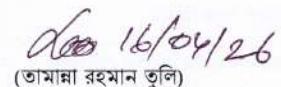 16/04/26
(তামান্না রহমান তুলি)